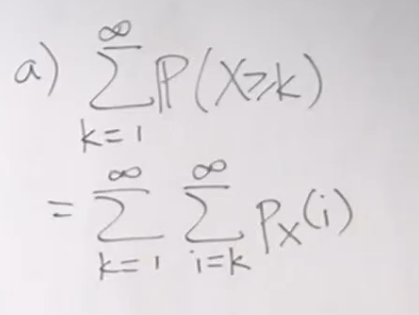 a) ∑_{k=1}^{∞} P(X≥k)
= ∑_{k=1}^{∞} ∑_{i=k}^{∞} p_X(i)